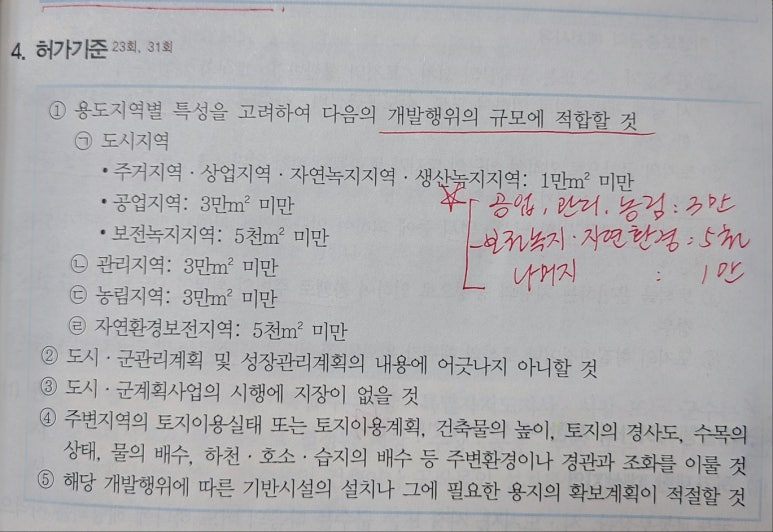 4. 허가기준 23회, 31회
① 용도지역별 특성을 고려하여 다음의 개발행위의 규모에 적합할 것
㉠ 도시지역
• 주거지역 · 상업지역 · 자연녹지지역 · 생산녹지지역: 1만m² 미만
• 공업지역: 3만m² 미만
• 보전녹지지역: 5천m² 미만
㉡ 관리지역: 3만m² 미만
㉢ 농림지역: 3만m² 미만
㉣ 자연환경보전지역: 5천m² 미만
공업, 관리, 농림 : 3만
보전녹지 · 자연환경 : 5천
나머지 : 1만
② 도시 · 군관리계획 및 성장관리계획의 내용에 어긋나지 아니할 것
③ 도시 · 군계획사업의 시행에 지장이 없을 것
④ 주변지역의 토지이용실태 또는 토지이용계획, 건축물의 높이, 토지의 경사도, 수목의
상태, 물의 배수, 하천 · 호소 · 습지의 배수 등 주변환경이나 경관과 조화를 이룰 것
⑤ 해당 개발행위에 따른 기반시설의 설치나 그에 필요한 용지의 확보계획이 적절할 것